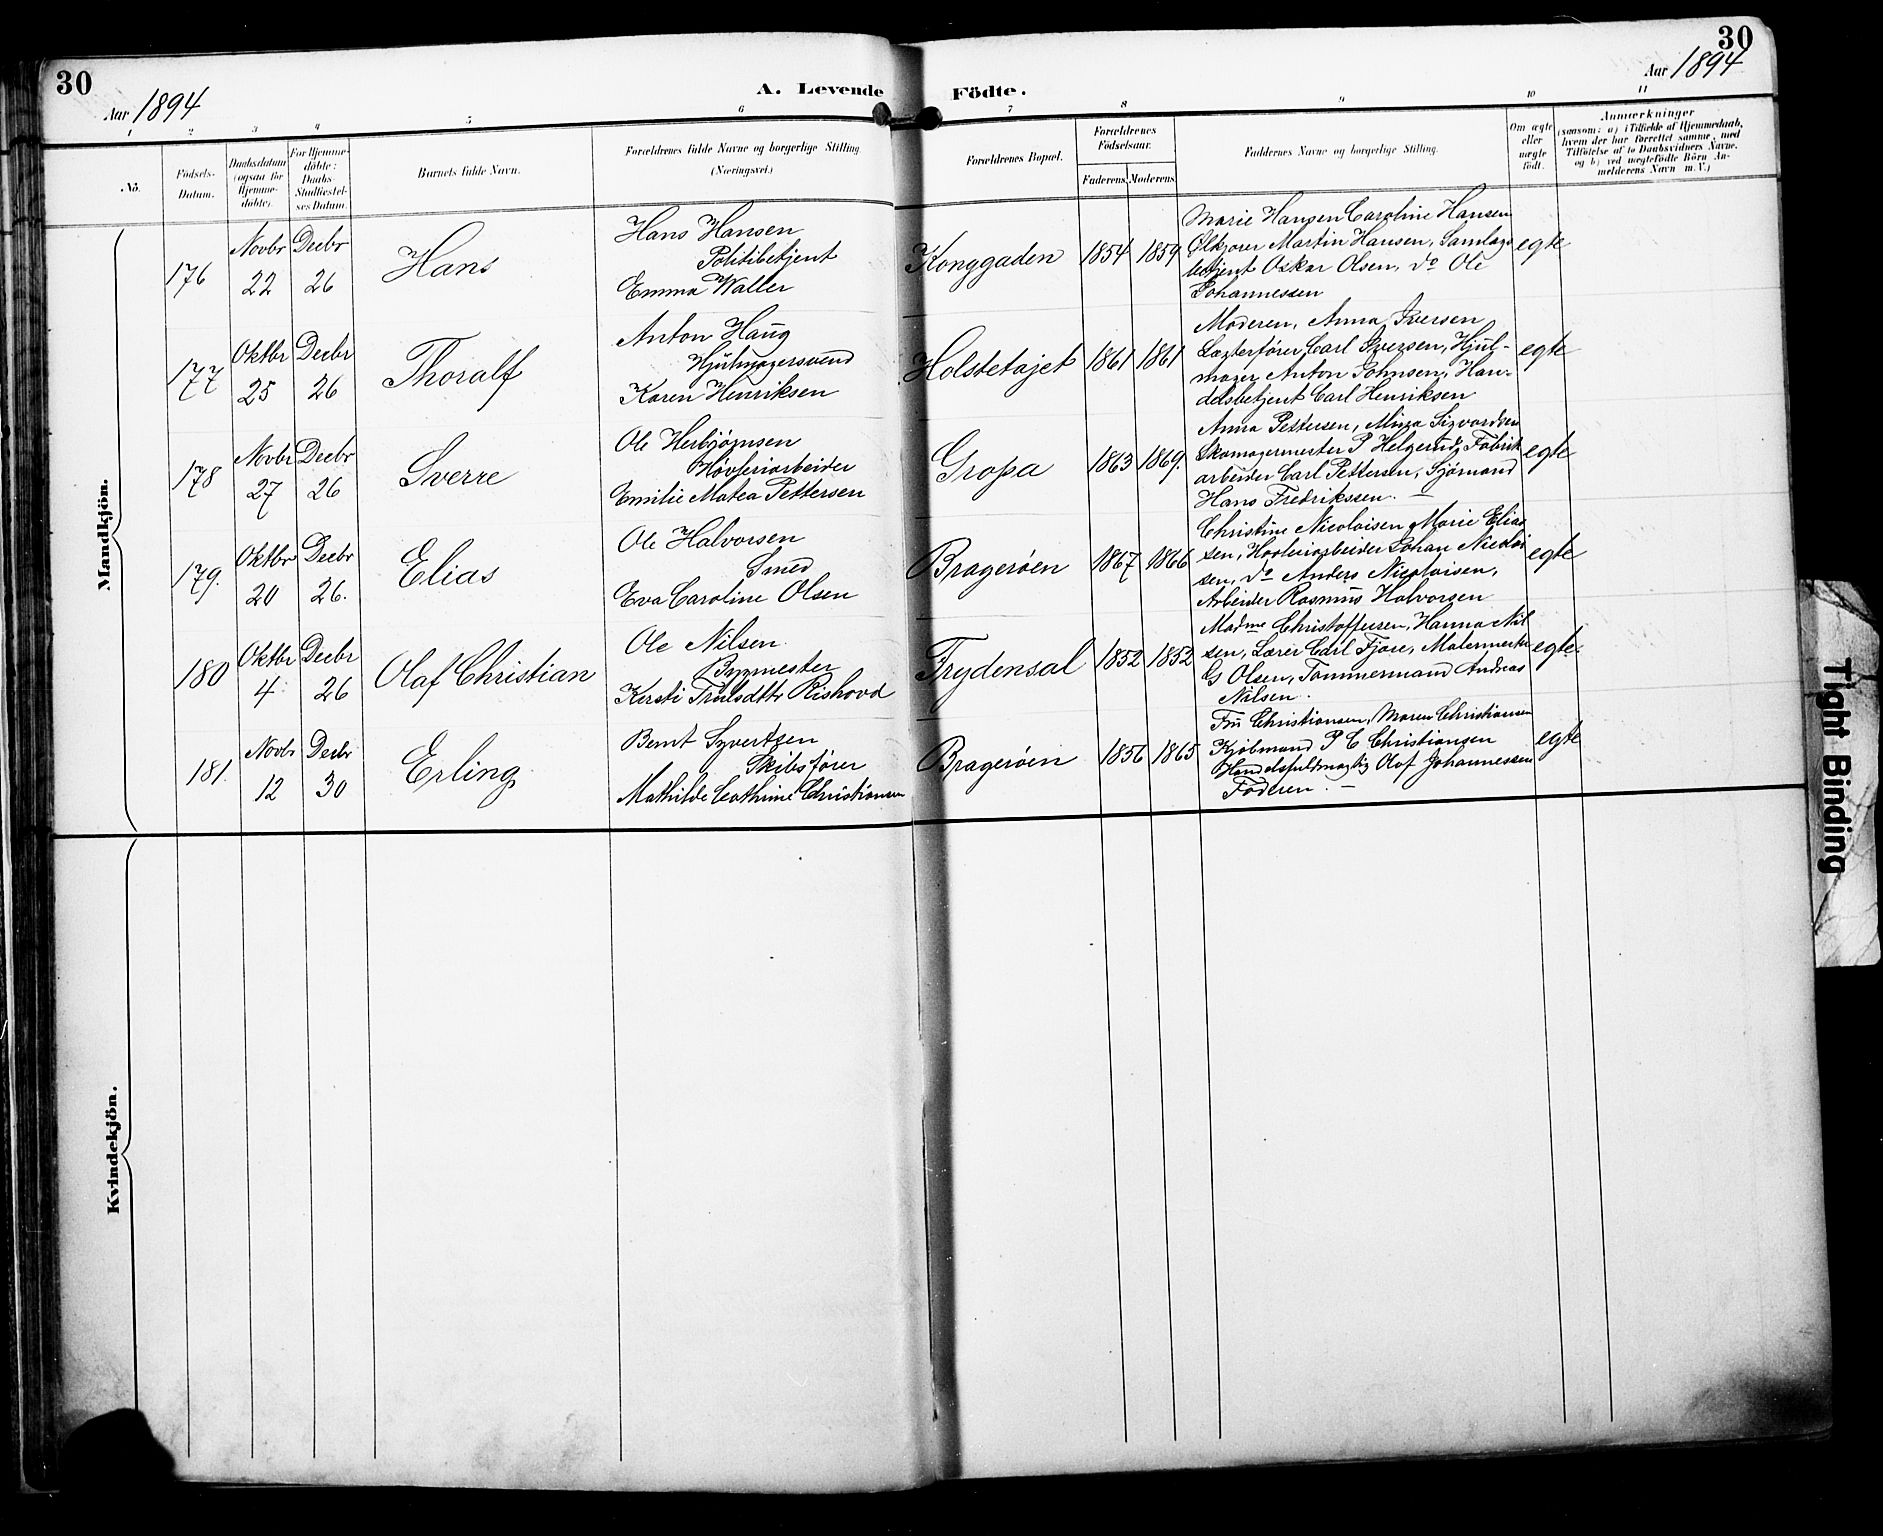 30
Aar 1894
A. Levende
Födte.
30
Aar 1894
1 2 3 4 5 6 7 8 9 10 11
No.
Födsels-
Datum.
Daabsdatum
(ogsaa for
Hjemme-
döbte).
For Hjemme-
döbte:
Daabs-
Stadfæstel-
ses Datum.
Barnets fulde Navn.
Forældrenes fulde Navne og borgerlige Stilling.
(Næringsvei.)
Forældrenes Bopæl.
Forældrenes
Födselsaar.
Faderens. Moderens.
Faddernes Navne og borgerlige Stilling.
Om ægte
eller
uægte
født.
Anmærkninger
(saasom: a) i Tilfælde af Hjemmedaab,
hvem der har forrettet samme, med
Tilføielse af to Daabsvidners Navne,
og b) ved uægtefödte Börn An-
melderens Navn m. V.)
Mandkjön.
176
Novbr
22
Decbr
26
Hans
Hans Hansen
Politibetjent
Emma Waller
Konggaden
1854
1859
Marie Hansen Caroline Hansen
Martin Hansen, Samlags
betjent Oskar Olsen, do Ole
Johannessen
egte
177
Oktbr
25
Decbr
26
Thoralf
Anton Haug
Hjulmagersvend
Karen Henriksen
Holstetøjet
1861
1861
Moderen, Anna Iversen
Carl Iversen, Hjul-
mager Anton Johnsen, Han-
delsbetjent Carl Henriksen
egte
178
Novbr
27
Decbr
26
Sverre
Ole Herbjørnsen
Høvleriarbeider
Emilie Matea Pettersen
Gropa
1863
1869.
Anna Pettersen,
Skomagermester P Helgerud, Fabrik
arbeider Carl Pettersen, Sjømand
Hans Fredrikssen. —
egte
179.
Oktbr
20
Decbr
26.
Elias
Ole Halvorsen
Smed
Eva Caroline Olsen
Bragerøen
1867
1866
Christine Nicolaisen, Marie Elias
sen, Høvleriarbeider Johan Nicolai
sen, do Anders Nicolaisen,
Arbeider Rasmus Halvorsen
egte
180
Oktbr
4
Decbr
26
Olaf Christian
Ole Nilsen
Bygmester
Kersti Trulsdtr Rishovd
Frydensal
1852
1852
Madme Christoffersen, Hanna Nil
sen, Lærer Carl Fjære, Malermester
G Olsen, Tømmermand Andreas
Nilsen.
egte
181.
Novbr
12
Decbr
30
Erling
Bernt Syvertsen
Skibsfører
Mathilde Cathrine Christiansen
Bragerøen
1856
1865
Fru Christiansen, Maren Christiansen
Kjøbmand P C Christiansen
Handelsfuldmægtig Olaf Johannessen
Faderen. —
egte
Kvindekjön.
Tight Binding